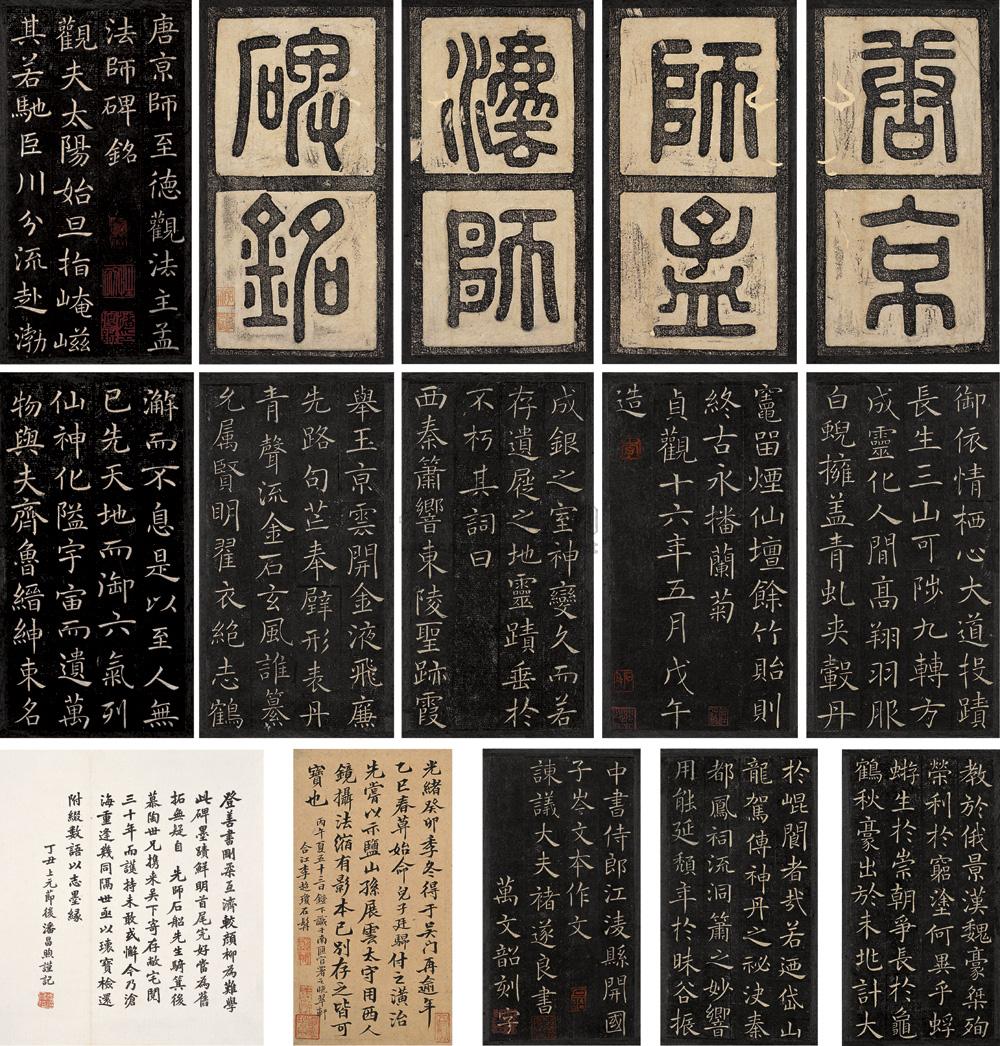 唐京
師孟
法師
碑銘
唐京師至德觀法主孟
法師碑銘
觀夫太陽始旦指崦嵫
其若馳巨川分流赴渤
御依情栖心大道投蹟
長生三山可陟九轉方
成靈化人閒高翔羽服
白蜺擁蓋青虬夾轂丹
竈留煙仙壇餘竹貽則
終古永播蘭菊
貞觀十六年五月戊午
造
成銀之室神變久而若
存遺屣之地靈蹟垂於
不朽其詞曰
西秦簫響東陵聖跡霞
舉玉京雲開金液飛廉
先路句芒奉辟形表丹
青聲流金石玄風誰纂
允属賢明翟衣絕志鶴
澥而不息是以至人無
已先天地而御六氣列
仙神化隘宇宙而遺萬
物與夫齊魯縉紳束名
教於俄景漢魏豪桀殉
榮利於窮塗何異乎蜉
蝣生於崇朝爭長於龜
鶴秋豪出於未兆計大
於崐閬者哉若迺岱山
龍駕傳神丹之祕決秦
都鳳祠流洞簫之妙響
用能延頹年於昧谷振
中書侍郎江淩縣開國
子岑文本作文
諫議大夫褚遂良書
萬文韶刻字
光緒癸卯季冬得于吳門再逾年
乙巳春草始命兒子廷驛付之潢治
先嘗以示鹽山孫展雲太守用西人
鏡攝法縮有影本已別存之皆可
寶也
丙午夏五十二日錄下識于南匯官署之晚翠軒
合江李超瓊石船
登善書剛柔互濟較顏柳為難學
此碑墨蹟鮮明首尾完好當為舊
拓無疑自 先師石船先生騎箕後
慕陶世兄携來吳下寄存敝宅閱
三十年而護持未敢或懈今乃滄
海重逢幾同隔世亟以瓌寶檢還
附綴數語以志墨緣
丁丑上元節後潘昌煦謹記